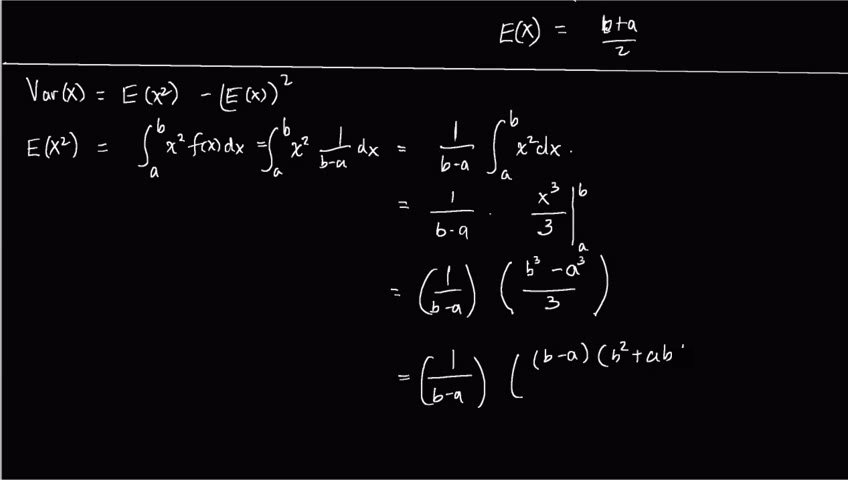 E(X) = b+a/2
Var(x) = E(x²) - (E(x))²
E(x²) = ∫_a^b x² f(x) dx = ∫_a^b x² 1/(b-a) dx = 1/(b-a) ∫_a^b x² dx.
= 1/(b-a) · x³/3 |_a^b
= (1/(b-a)) ((b³ - a³)/3)
= (1/(b-a)) ( (b-a) (b² + ab